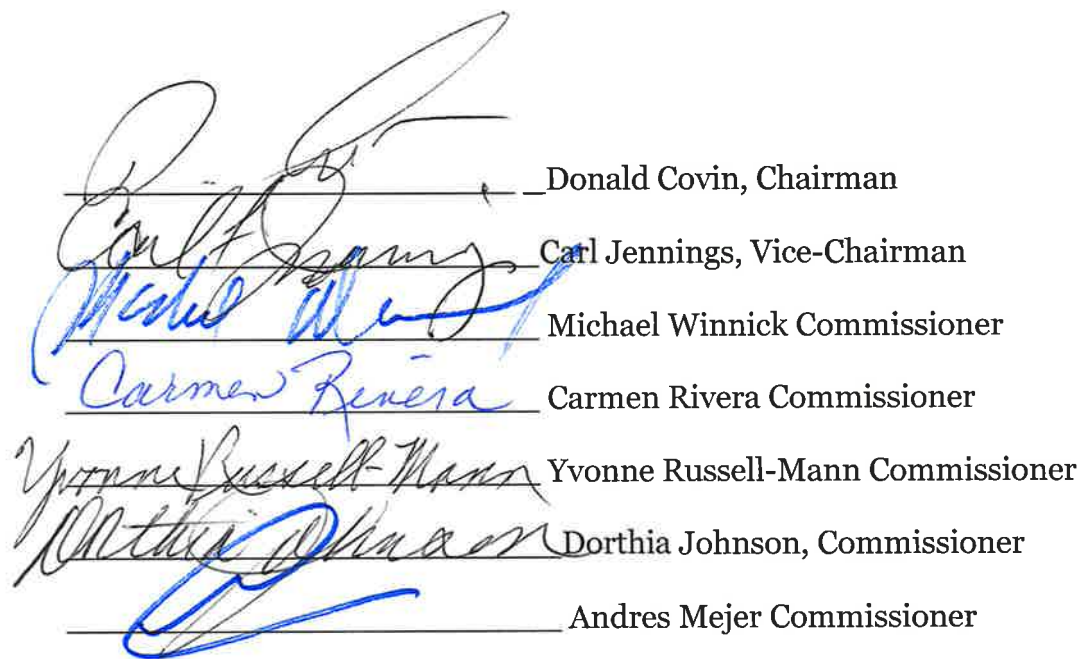 _Donald Covin, Chairman
Carl F Jennings Carl Jennings, Vice-Chairman
Michael Winnick Commissioner
Carmen Rivera Carmen Rivera Commissioner
Yvonne Russell-Mann Yvonne Russell-Mann Commissioner
Dorthia Johnson Dorthia Johnson, Commissioner
Andres Mejer Commissioner